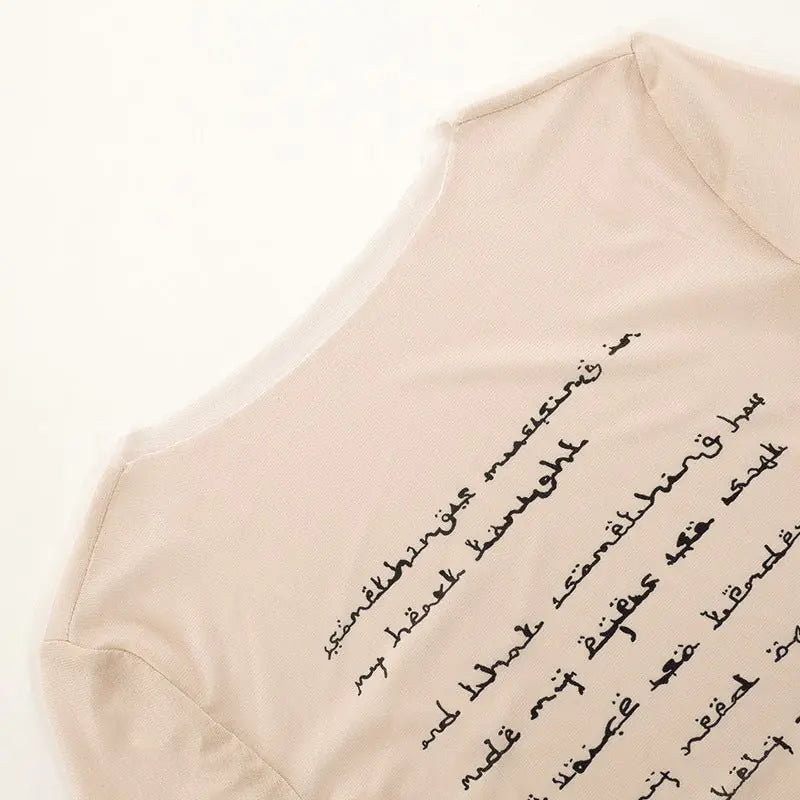 somethings missing in
my heart tonight
and that something has
made my eyes so soft
voice so tender
my need of